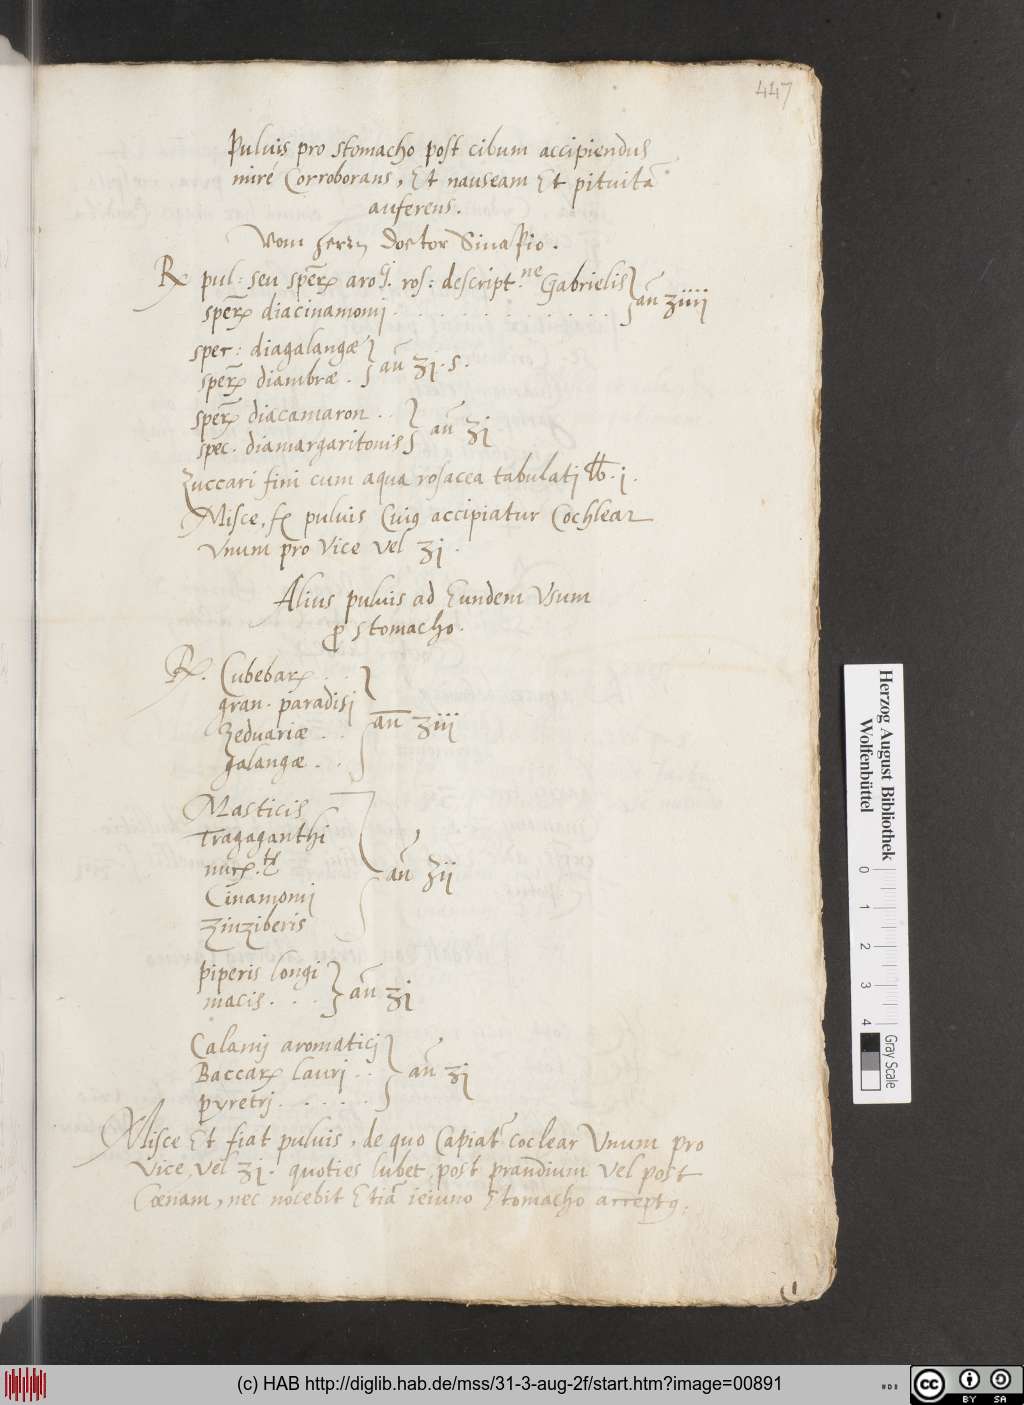 447
Puluis pro stomacho post cibum accipiendus
mire Corroborans, Et nauseam Et pituitā
auferens.
Vom herrn Doctor Sinapio.
℞ pul: seu speꝝ aro: ros: descript.ne Gabrielis } an̄ ʒiiij
speꝝ diacinamomj . . . . . . . . . .
spec: diagalangæ } an̄ ʒj.s.
speꝝ diambræ .
speꝝ diacamaron . . } an̄ ʒj
spec. diamargaritonis
Zuccari fini cum aqua rosacea tabulatj ℔.j.
Misce, f puluis Cuiꝰ accipiatur Cochlear
Vnum pro Vice vel ʒj.
Alius puluis ad Eundem Vsum
ꝓ stomacho.
℞. Cubebaꝝ . .
gran. paradisj
Zeduariæ . . } an̄ ʒiij
galangæ . .
Masticis
Tragaganthi
nuc
Cinamomj } an̄ ʒij
Zinziberis
piperis longi } an̄ ʒj
macis . . .
Calamj aromaticj
Baccaꝝ laurj . . } an̄ ʒj
pyretrj . . . . .
Misce Et fiat puluis, de quo Capiat coclear Vnum pro
Vice, vel ʒj. quoties lubet, post prandium vel post
Cœnam, nec nocebit Etiā ieiuno Stomacho acceptꝰ.
Herzog August Bibliothek
Wolfenbüttel
0 1 2 3 4
Gray Scale
(c) HAB http://diglib.hab.de/mss/31-3-aug-2f/start.htm?image=00891
HAB
cc BY SA